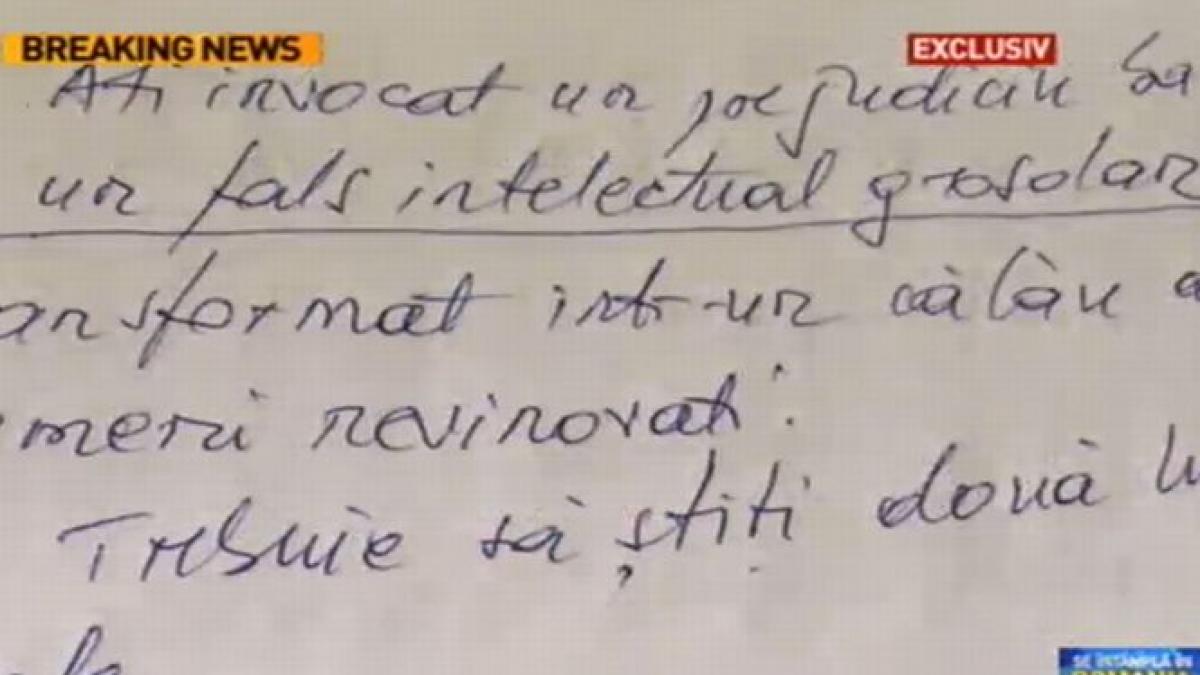 BREAKING NEWS
EXCLUSIV
Ați invocat un prejudiciu ba
un fals intelectual grosolan
ansformat într-un călău a
meni nevinovați!
Trebuie să știți două lu
SE ÎNTÂMPLĂ ÎN
ROMÂNIA